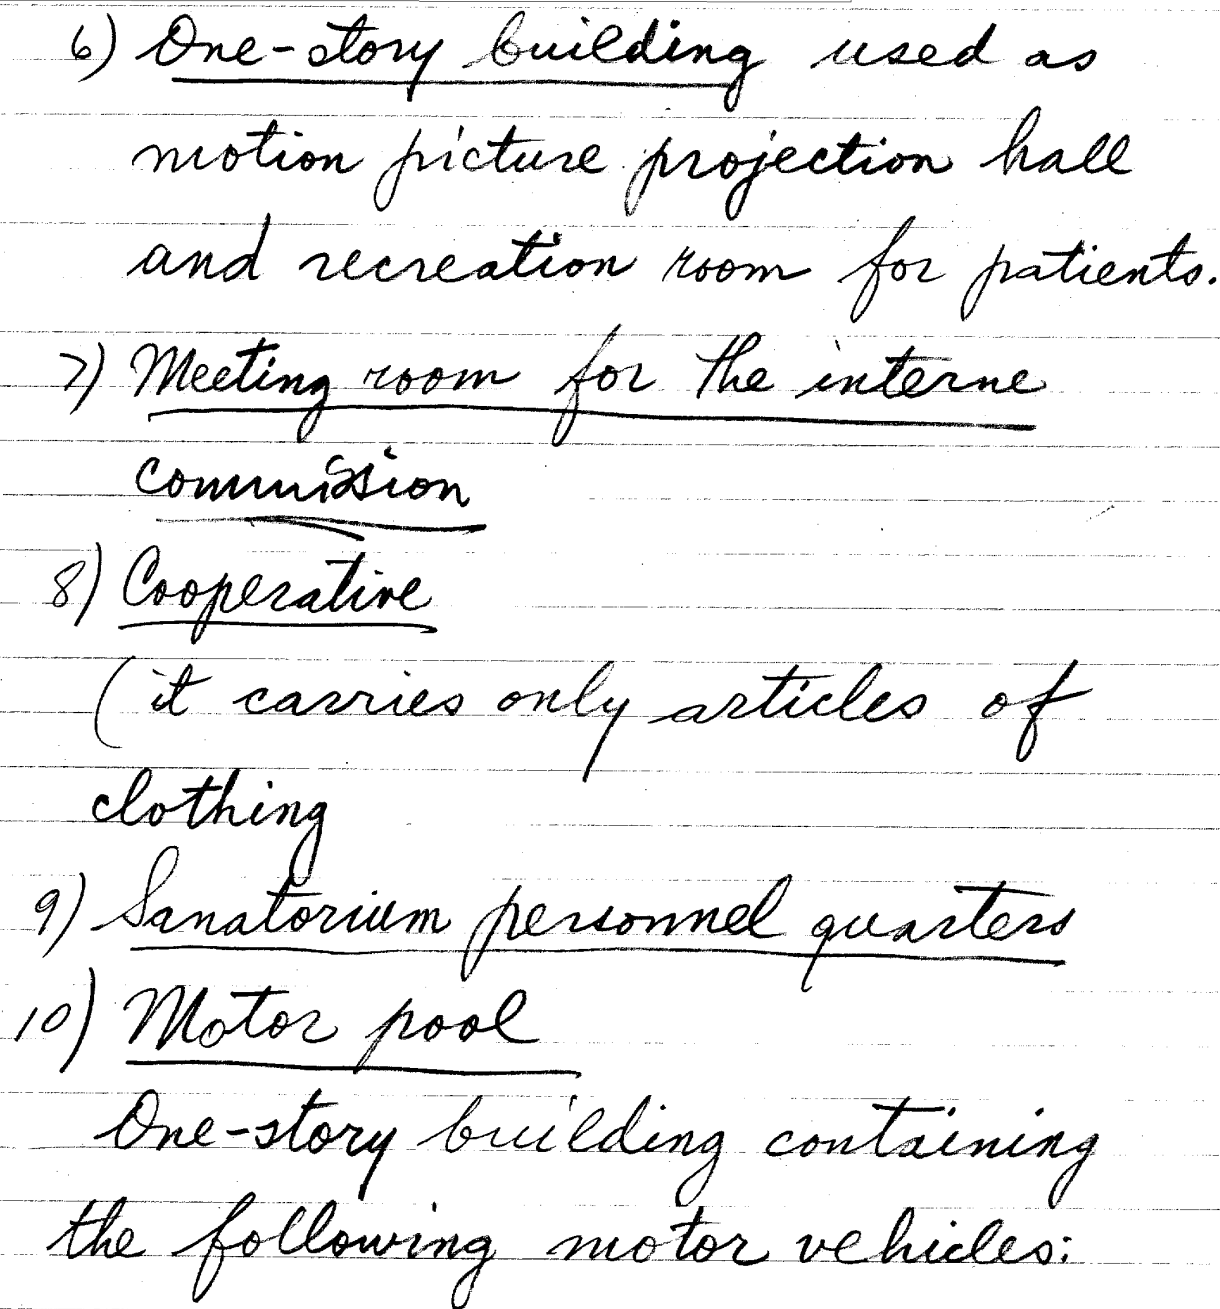 6) One-story building used as
motion picture projection hall
and recreation room for patients.
7) Meeting room for the interne
commission
8) Cooperative
(it carries only articles of
clothing
9) Sanatorium personnel quarters
10) Motor pool
One-story building containing
the following motor vehicles: